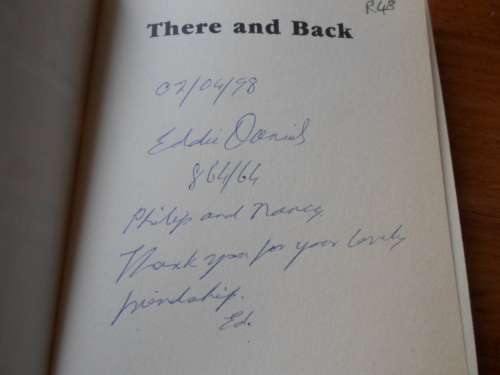 R48
There and Back
02/04/98
Eddie Daniels
864/64
Philip and Nancy
Thank you for your lovely
friendship.
Ed.